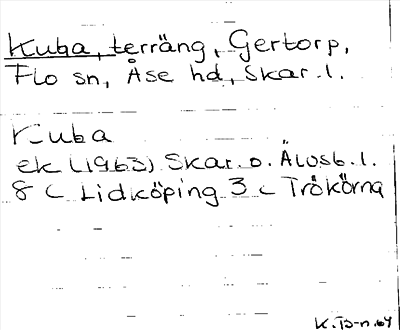 Kuba, terräng, Gertorp,
Flo sn, Åse hd, Skar. l.
Kuba
ek (1963) Skar. o. Älvsb. l.
8 C Lidköping 3 C Trökörna
K. B-n. 64